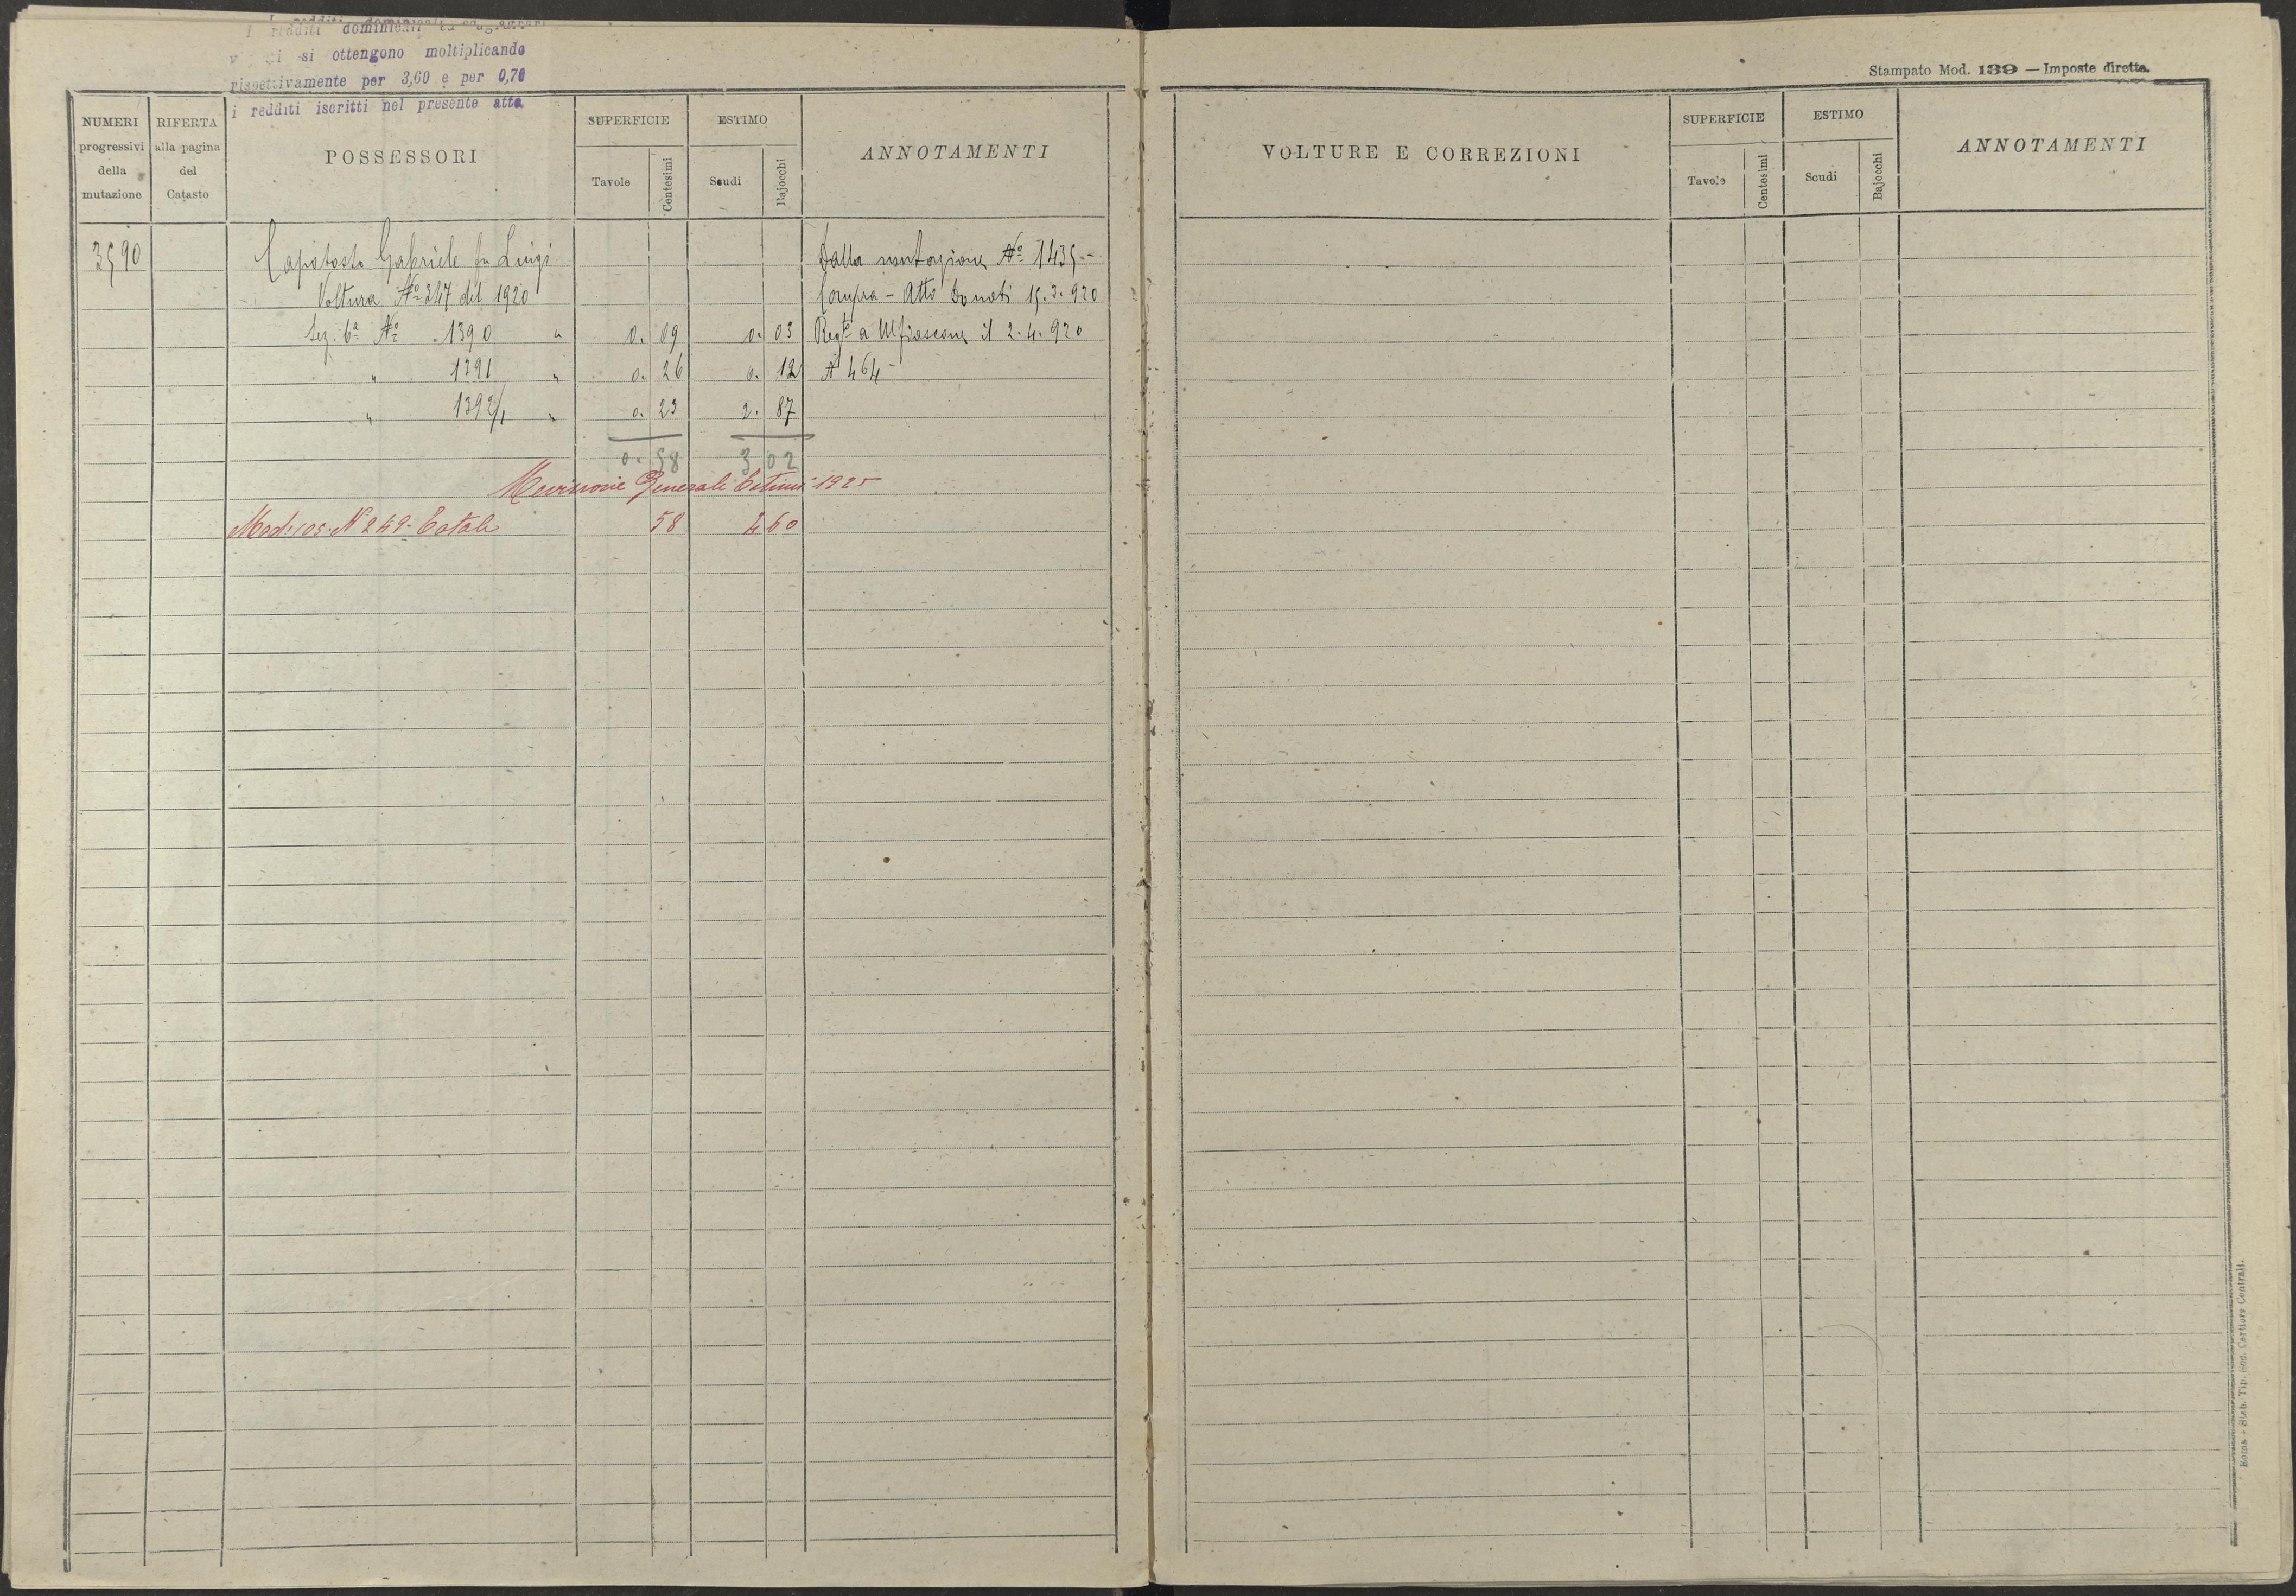 I redditi dominicali ed agrari
si ottengono moltiplicando
rispettivamente per 3,60 e per 0,70
i redditi iscritti nel presente atto
NUMERI progressivi della mutazione
RIFERTA alla pagina del Catasto
POSSESSORI
SUPERFICIE
Tavole
Centesimi
ESTIMO
Scudi
Bajocchi
ANNOTAMENTI
3590 Capotosto Gabriele fu Luigi Dalla mutazione No 1435 -
Voltura No 347 del 1920 Compra - Atto Donati 15.3.920
Sez. 6a No 1390 " 0. 09 0. 03 Regto a Mfiascone il 2.4.920
" 1391 " 0. 26 0. 12 No 464 -
" 1392/1 " 0. 23 2. 87
0. 58 3 02
Revisione Generale Estimi 1925
Mod. 105 N 249 - Totale 58 4 60
Stampato Mod. 139 — Imposte dirette.
VOLTURE E CORREZIONI
SUPERFICIE
Tavole
Centesimi
ESTIMO
Scudi
Bajocchi
ANNOTAMENTI
Roma - Stab. Tip. Cartiere Centrali.